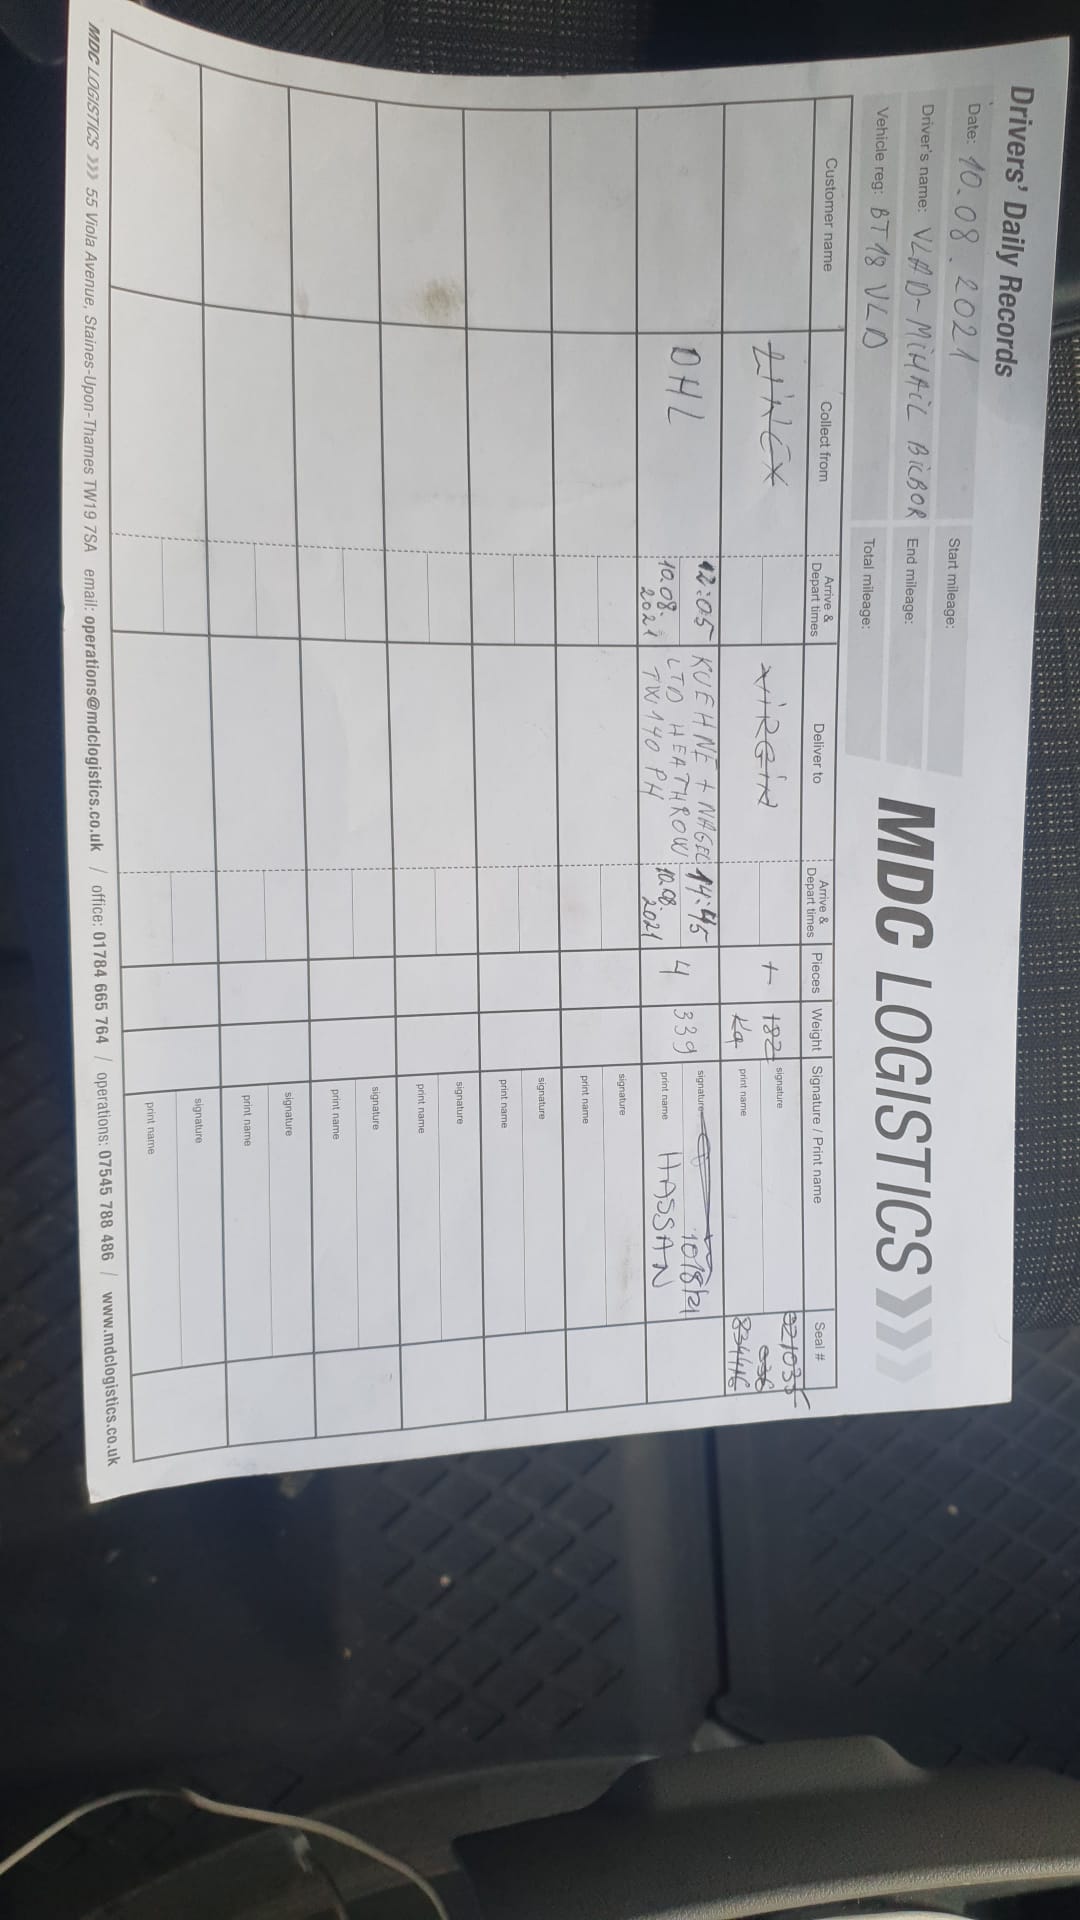 Drivers' Daily Records
Date: 10.08.2021
Start mileage:
Driver's name: VLAD-MiHAiL BiCBOR
End mileage:
Vehicle reg: BT18 VLD
Total mileage:
MDC LOGISTICS
Customer name
Collect from
Arrive & Depart times
Deliver to
Arrive & Depart times
Pieces
Weight
Signature / Print name
Seal #
LiNEX
ViRGiN
1
182 Kg
signature
print name
021035
834416
DHL
12:05
10.08.2021
KUEHNE + NAGEL
LTD HEATHROW
TW140PH
14:45
10.08.2021
4
339
signature
10/8/21
print name HASSAN
signature
print name
signature
print name
signature
print name
signature
print name
signature
print name
signature
print name
MDC LOGISTICS 55 Viola Avenue, Staines-Upon-Thames TW19 7SA email: operations@mdclogistics.co.uk / office: 01784 665 764 / operations: 07545 788 486 / www.mdclogistics.co.uk